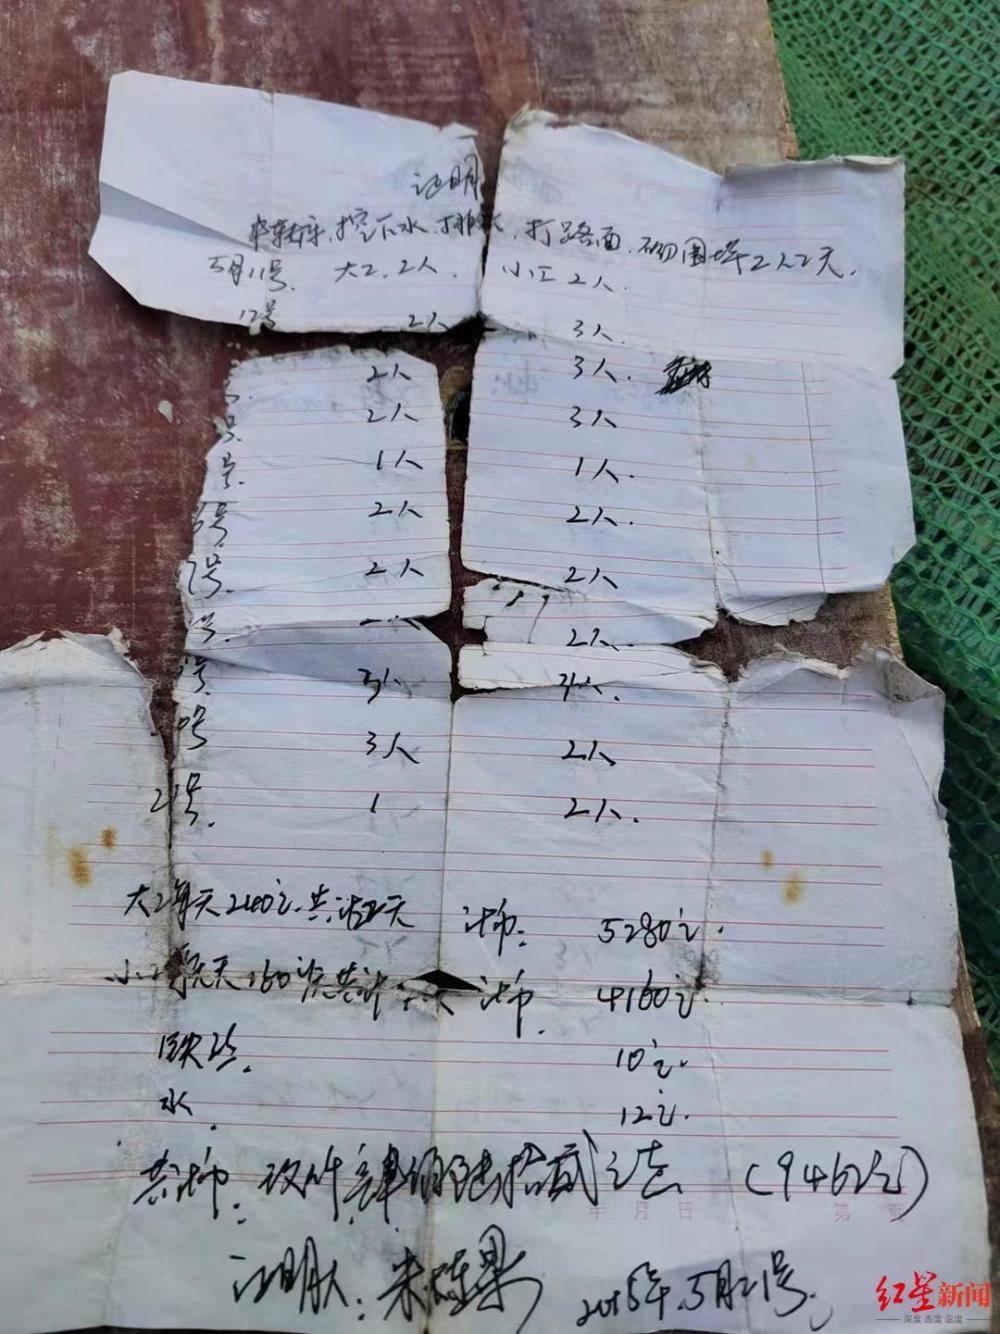 证明
挖下水.排水,打路面.砌围墙2人2天.
5月11号. 大工.2人. 小工2人.
12号 2人 3人.
2人 3人.
号. 2人 3人
号. 1人 1人.
号 2人 2人.
号. 2人 2人
号. 2人.
号 3人 人.
号 3人 2人
2 号. 1 2人.
大工每天240元.共计22天 计币: 5280元.
小工每天160元共计 天 计币. 4160元.
铁丝. 10元.
水. 12元.
共计币. 玖仟肆佰陆拾贰元 (9462元)
年 月 日 第 页
证明人: 朱 果 2015年.5月21号.
红星新闻
深度 态度 温度